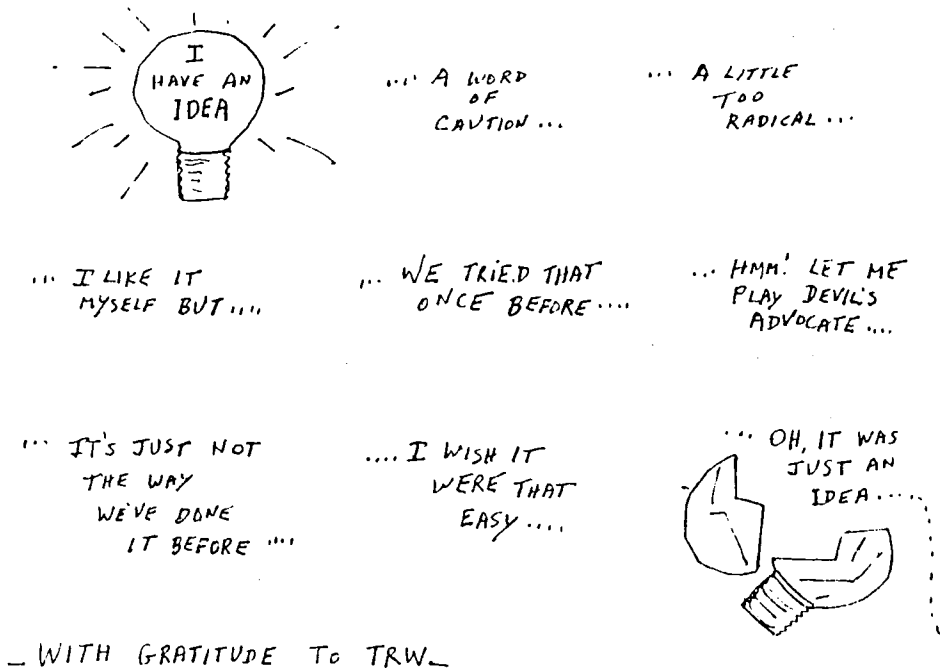 I
HAVE AN
IDEA
... A WORD
OF
CAUTION...
... A LITTLE
TOO
RADICAL...
... I LIKE IT
MYSELF BUT....
... WE TRIED THAT
ONCE BEFORE....
... HMM! LET ME
PLAY DEVIL'S
ADVOCATE....
... IT'S JUST NOT
THE WAY
WE'VE DONE
IT BEFORE ....
.... I WISH IT
WERE THAT
EASY....
... OH, IT WAS
JUST AN
IDEA.....
_ WITH GRATITUDE TO TRW_